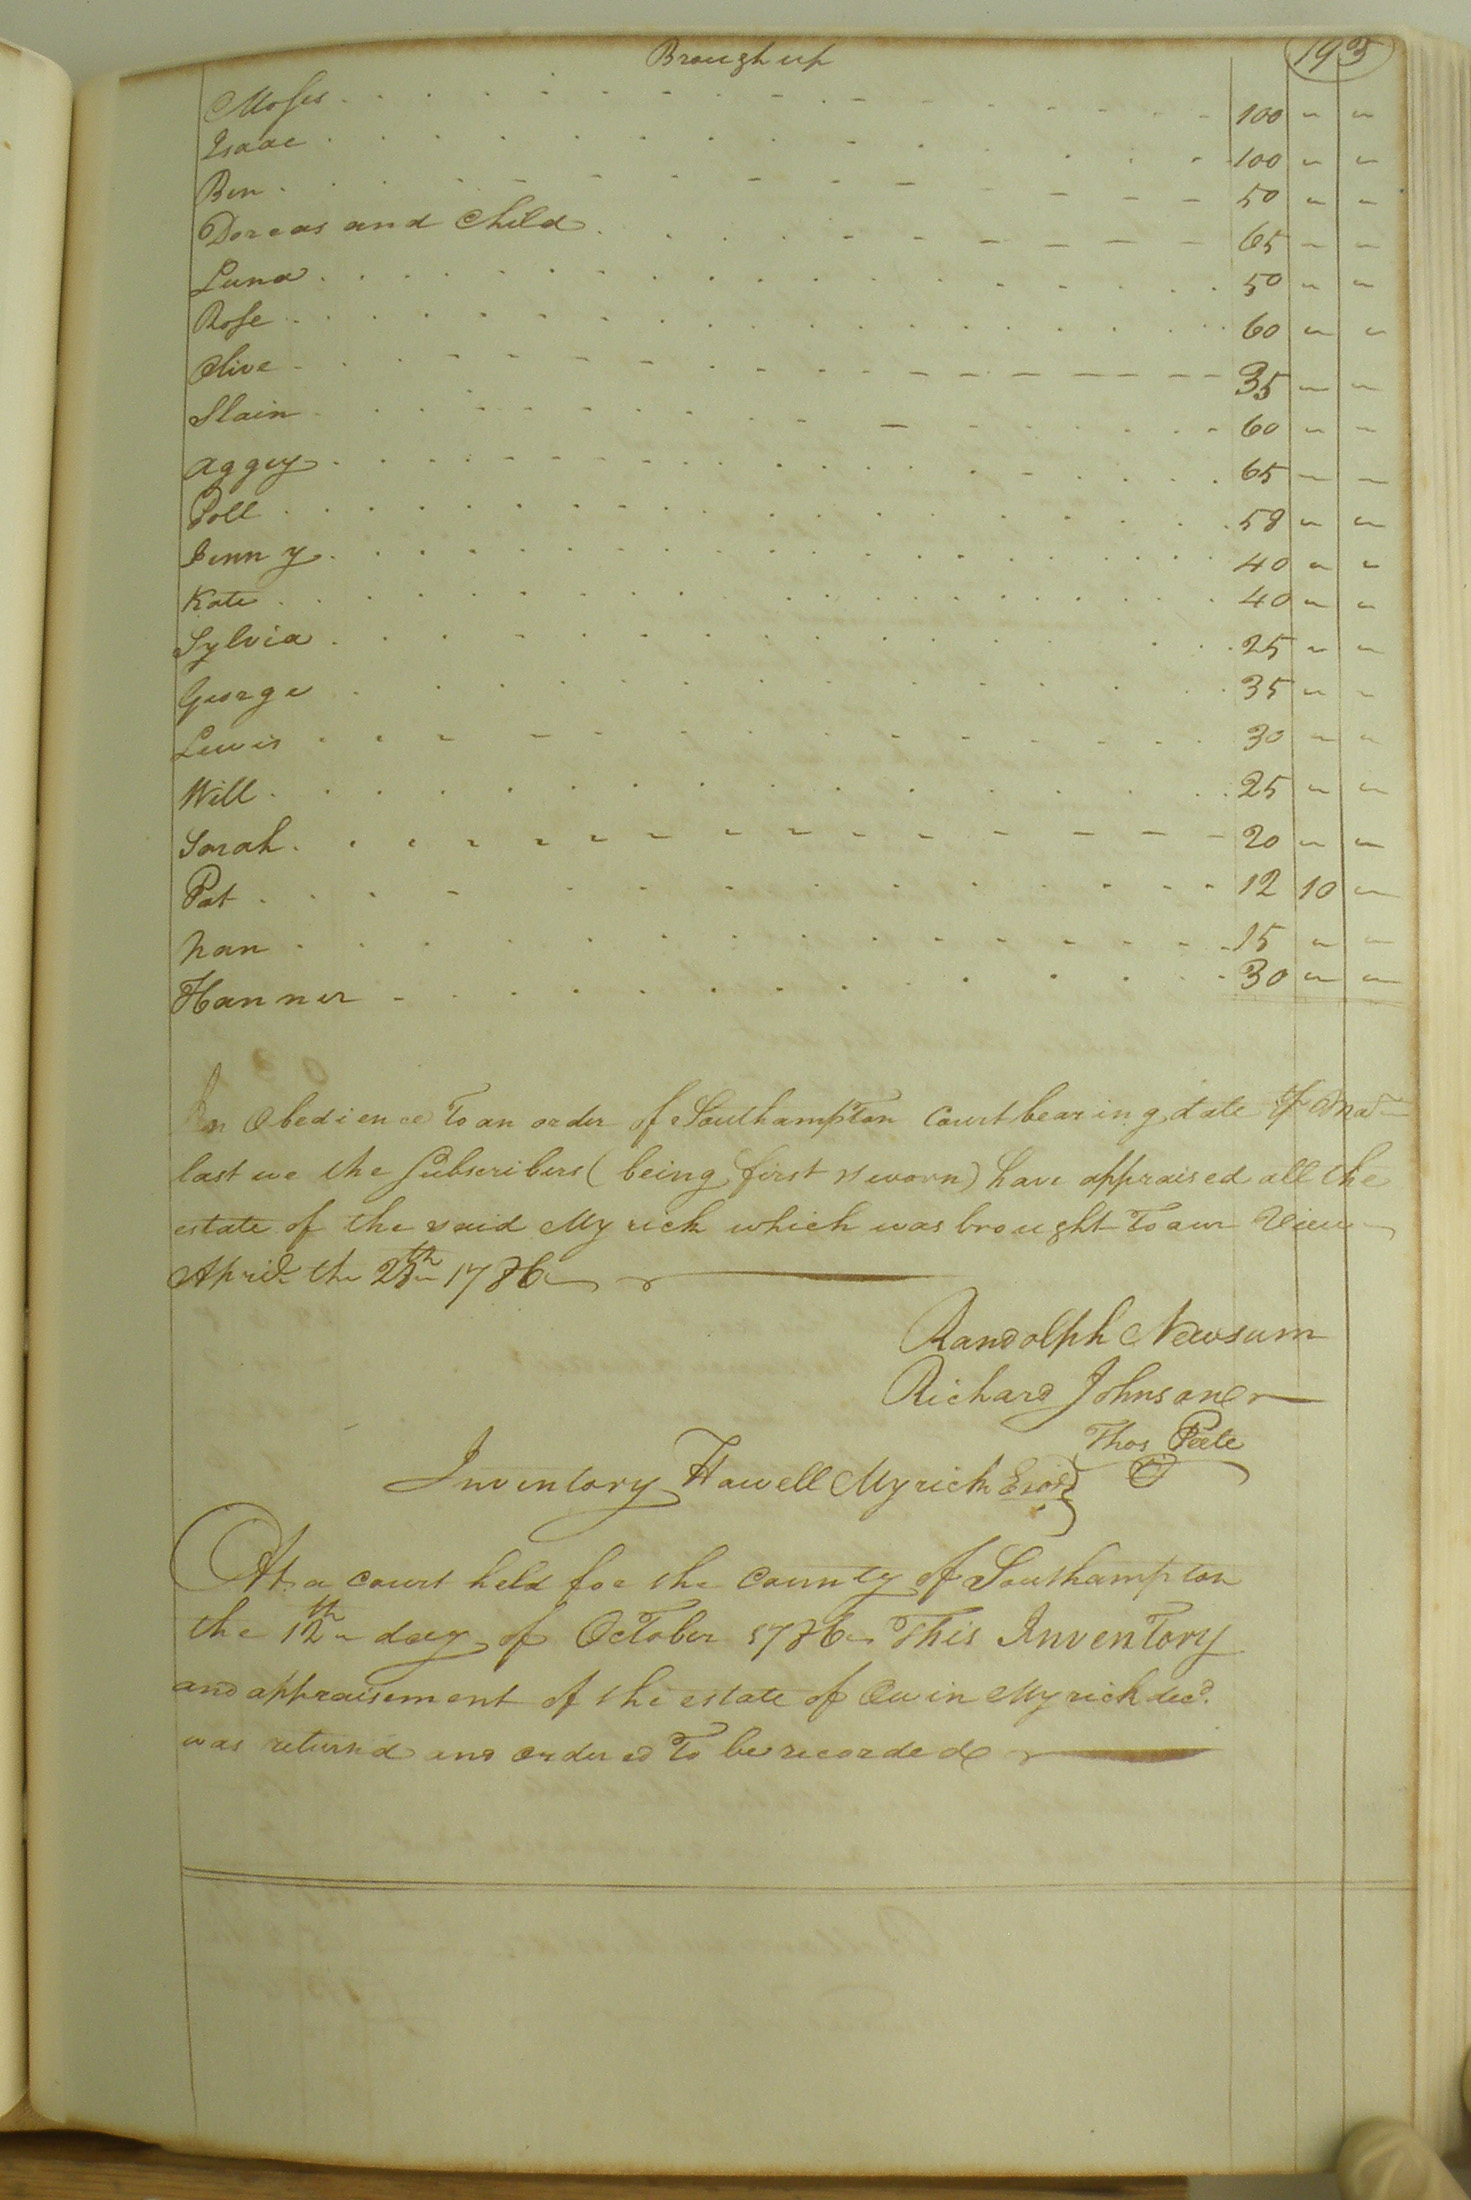 Brough up 193
Moses 100 " "
Isaac 100 " "
Ben 50 " "
Dorcas and Child 65 " "
Luna 50 " "
Rose 60 " "
Olive 35 " "
Slain 60 " "
Aggey 65 " "
Poll 58 " "
Jenny 40 " "
Kate 40 " "
Sylvia 25 " "
George 35 " "
Lewis 30 " "
Will 25 " "
Sarah 20 " "
Pat 12 10 "
Nan 15 " "
Hanner 30 " "
In Obedience To an order of Southampton Court bearing date
last we the Subscribers (being first sworn) have appraised all the
estate of the said Myrick which was brought To our View
April the 28th 1786
Randolph Newsum
Richard Johnson
Thos Peete
Inventory Howell Myrick
At a court held for the County of Southampton
the 12th day of October 1786 This Inventory
and appraisement of the estate of Owin Myrick decd.
was returnd and ordered To be recorded